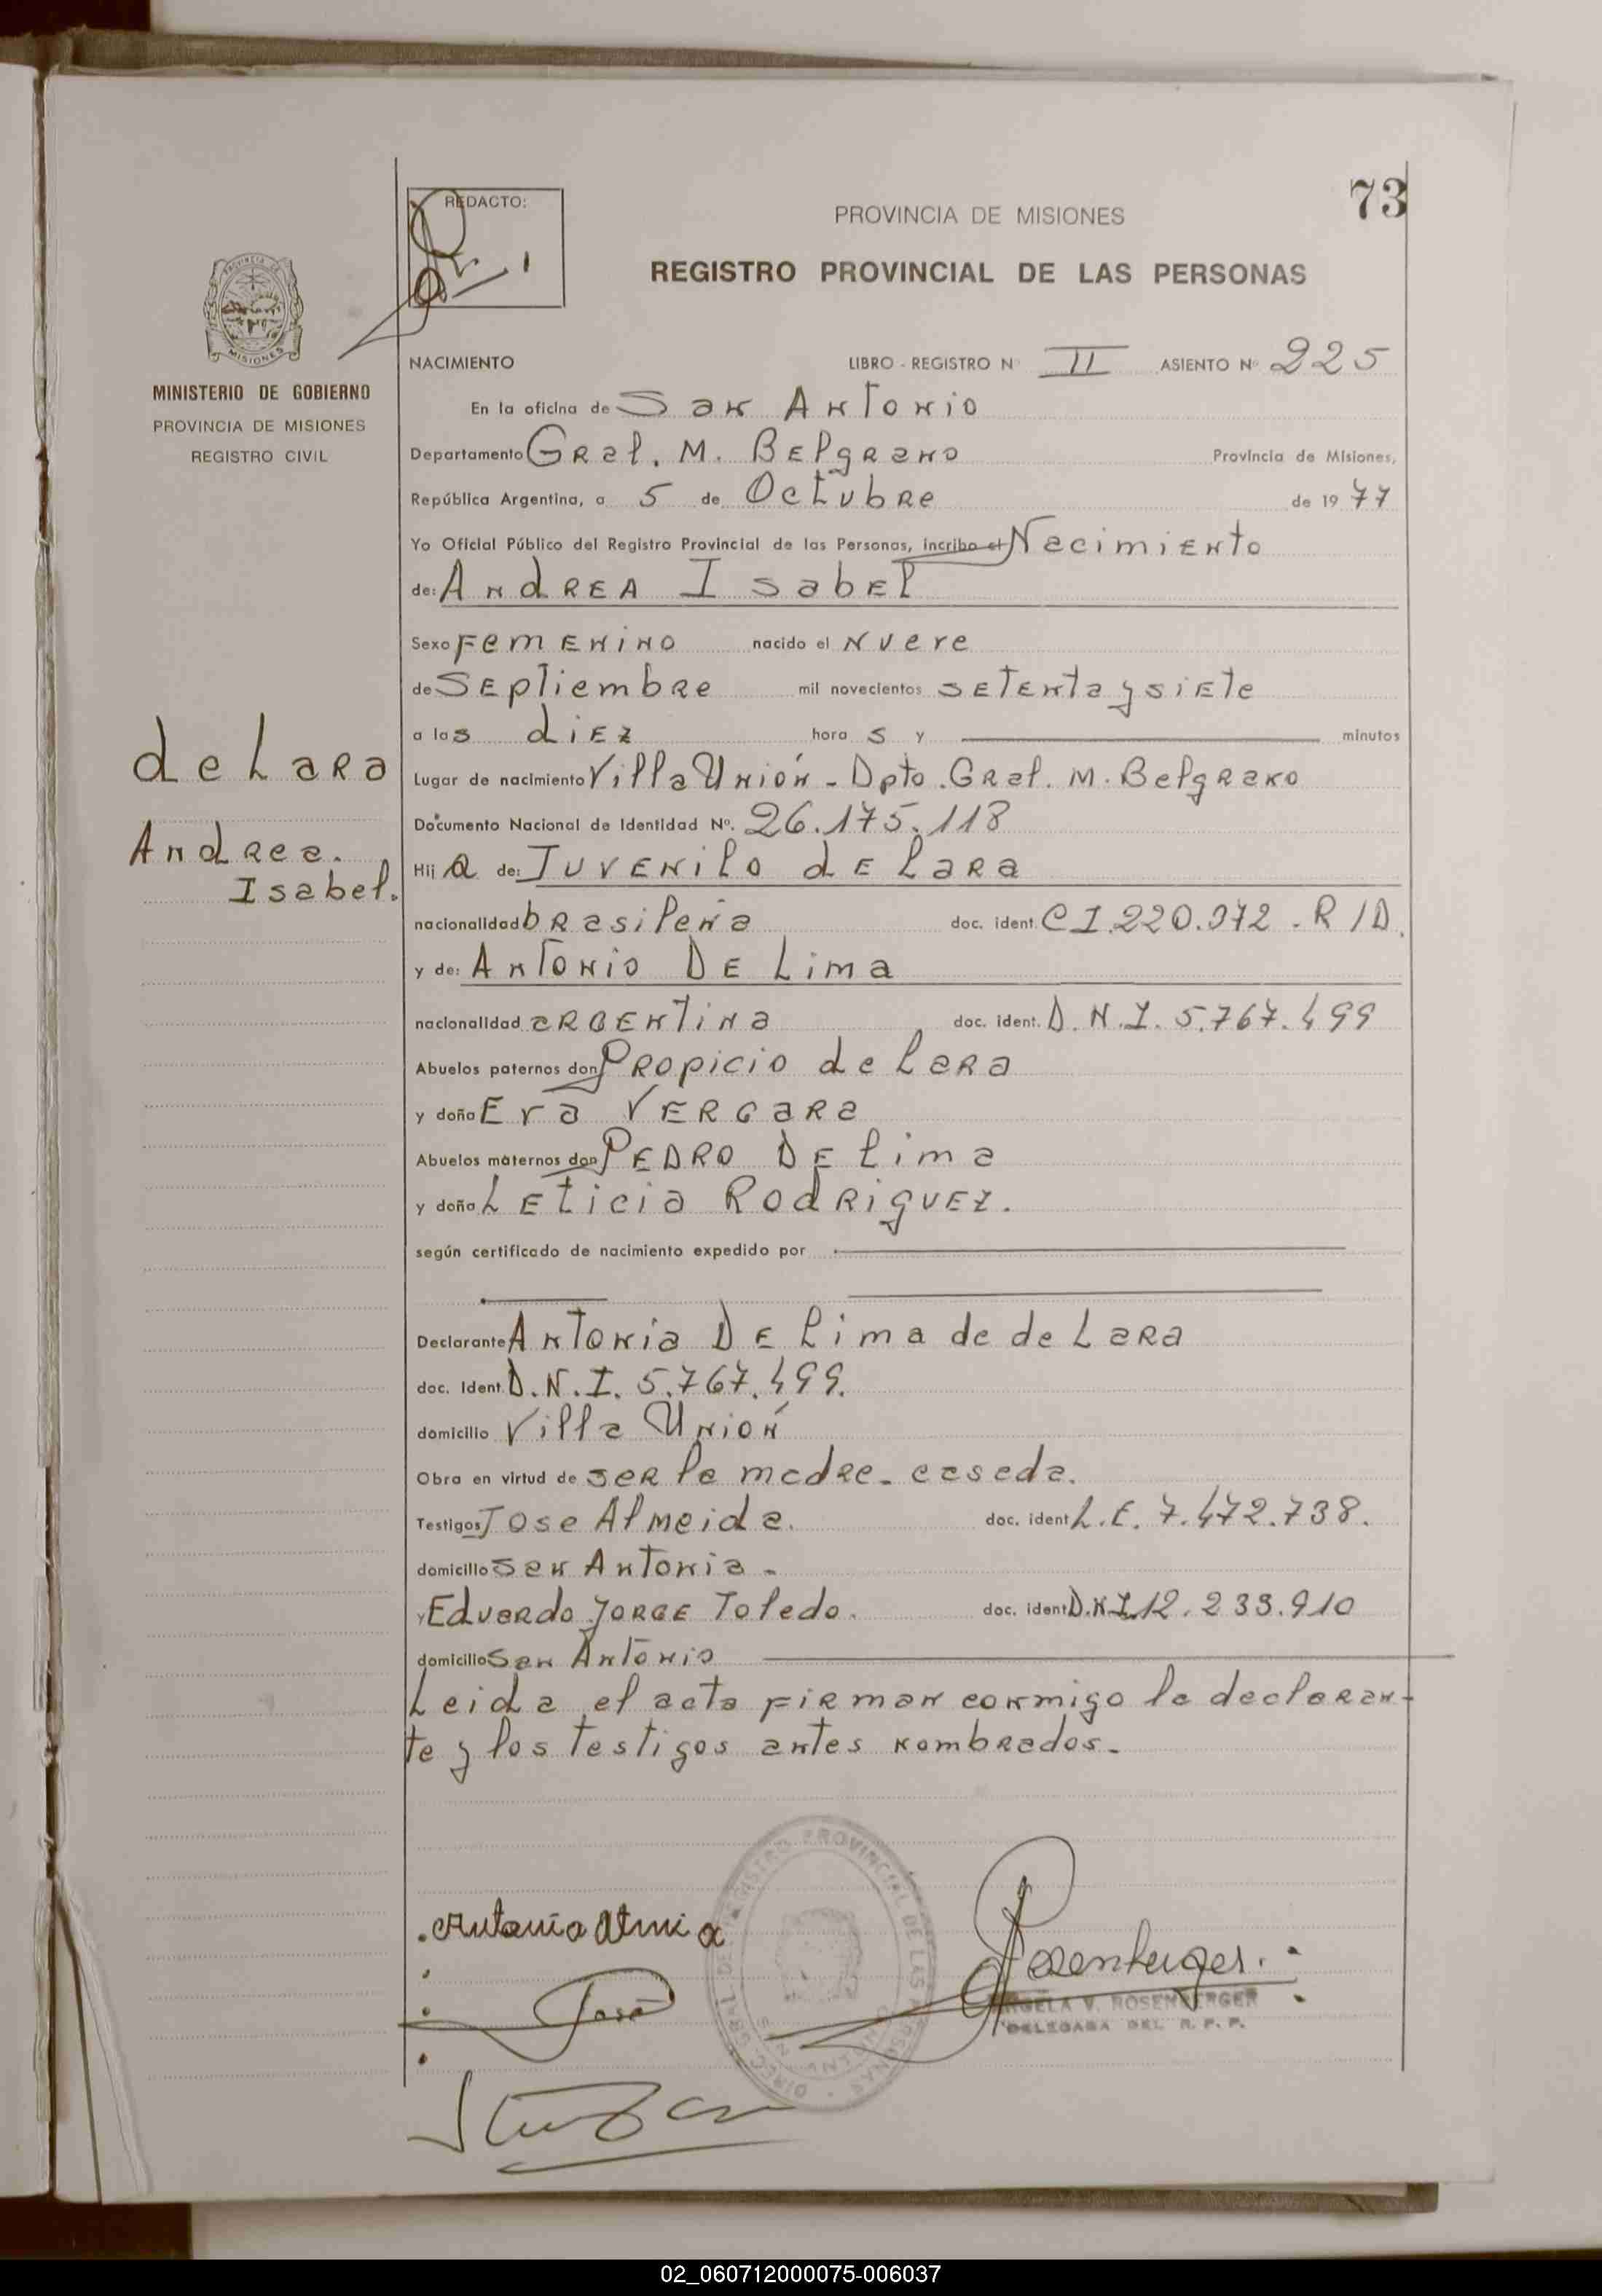 73
REDACTO:
PROVINCIA DE MISIONES
REGISTRO PROVINCIAL DE LAS PERSONAS
MISIONES
MINISTERIO DE GOBIERNO
PROVINCIA DE MISIONES
REGISTRO CIVIL
NACIMIENTO LIBRO - REGISTRO Nº II ASIENTO Nº 225
En la oficina de San Antonio
Departamento Gral. M. Belgrano Provincia de Misiones,
República Argentina, a 5 de Octubre de 1977
Yo Oficial Público del Registro Provincial de las Personas, incribo el Nacimiento
de: Andrea Isabel
Sexo Femenino nacido el Nueve
de Septiembre mil novecientos setenta y siete
a las diez hora s y minutos
de Lara
Andrea.
Isabel.
Lugar de nacimiento Villa Unión - Dpto. Gral. M. Belgrano
Documento Nacional de Identidad Nº. 26.175.118
Hij a de: Juvenilo de Lara
nacionalidad brasileña doc. ident. C I. 220.972 . R / D.
y de: Antonio De Lima
nacionalidad argentina doc. ident. D.N.I. 5.767.499
Abuelos paternos don Propicio de Lara
y doña Eva Vergara
Abuelos maternos don Pedro De Lima
y doña Leticia Rodriguez.
según certificado de nacimiento expedido por
Declarante Antonia De Lima de de Lara
doc. Ident. D.N.I. 5.767.499.
domicilio Villa Unión
Obra en virtud de ser la madre - casada.
Testigos Jose Almeida. doc. ident L.E. 7.472.738.
domicilio San Antonia -
y Eduardo Jorge Toledo. doc. ident D.N.I. 12.233.910
domicilio San Antonio
Leida el acta firman conmigo la declaran-
te y los testigos antes nombrados -
DIREC. GRAL. DEL REGISTRO PROVINCIAL DE LAS PERSONAS
SAN ANTONIO
Rosenberger.
José
ANGELA V. ROSENBERGER
DELEGADA DEL R. P. P.
02_060712000075-006037